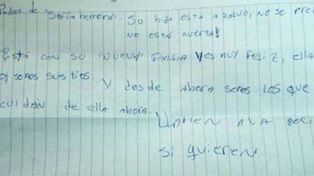 Padres de Sofia herrera. Su hija esta a salvo, no se pre
no esta muerta!
Está con su nueva familia y es muy feliz, ella
somos sus tios. Y desde ahora somos los que
cuidan de ella ahora.
Llamen a la poli
si quieren